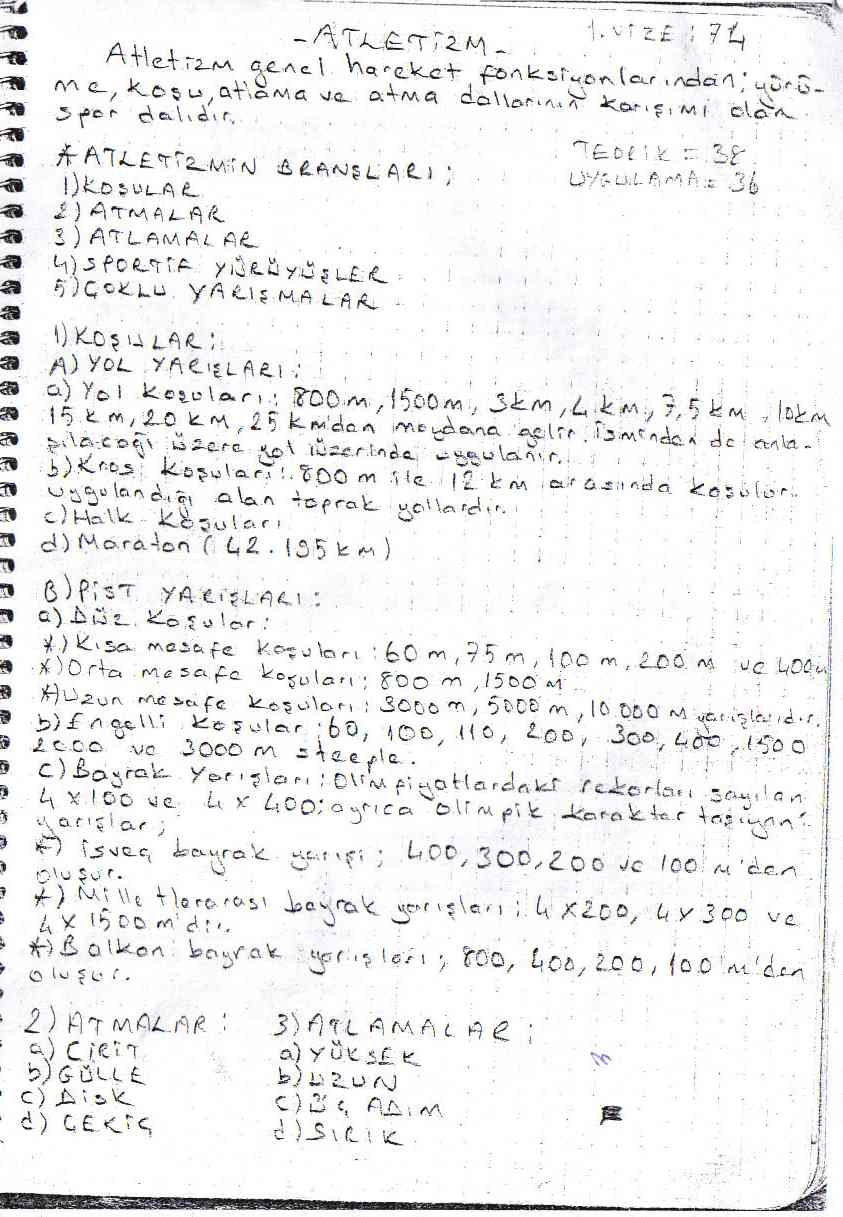 -ATLETİZM-
1.VİZE : 74
Atletizm genel hareket fonksiyonlarından; yürü-
me, koşu, atlama ve atma dallarının karışımı olan
spor dalıdır.
TEORİK = 38
UYGULAMA = 36
* ATLETİZMİN BRANŞLARI ;
1) KOŞULAR
2) ATMALAR
3) ATLAMALAR
4) SPORTİF YÜRÜYÜŞLER
5) ÇOKLU YARIŞMALAR
1) KOŞULAR :
A) YOL YARIŞLARI :
a) Yol koşuları : 800 m, 1500 m, 3 km, 4 km, 7,5 km, 10 km
15 km, 20 km, 25 km'den meydana gelir. İsminden de anla-
şılacağı üzere yol üzerinde uygulanır.
b) Kros koşuları : 800 m ile 12 km arasında koşulur.
uygulandığı alan toprak yollardır.
c) Halk koşuları
d) Maraton (42.195 km)
B) PİST YARIŞLARI :
a) Düz koşular :
*) Kısa mesafe koşuları : 60 m, 75 m, 100 m, 200 m ve 400 m
*) Orta mesafe koşuları ; 800 m, 1500 m
*) Uzun mesafe koşuları : 3000 m, 5000 m, 10.000 m yarışlarıdır.
b) Engelli koşular : 60, 100, 110, 200, 300, 400, 1500
2000 ve 3000 m steeple.
c) Bayrak Yarışları : Olimpiyatlardaki rekorları sayılan
4 x 100 ve 4 x 400; ayrıca olimpik karakter taşıyan
yarışlar ;
*) İsveç bayrak yarışı ; 400, 300, 200 ve 100 m'den
oluşur.
*) Milletlerarası bayrak yarışları ; 4 x 200, 4 x 300 ve
4 x 1500 m'dir.
*) Balkan bayrak yarışları ; 800, 400, 200, 100 m'den
oluşur.
2) ATMALAR :
a) CİRİT
b) GÜLLE
c) DİSK
d) ÇEKİÇ
3) ATLAMALAR ;
a) YÜKSEK
b) UZUN
c) ÜÇ ADIM
d) SIRIK